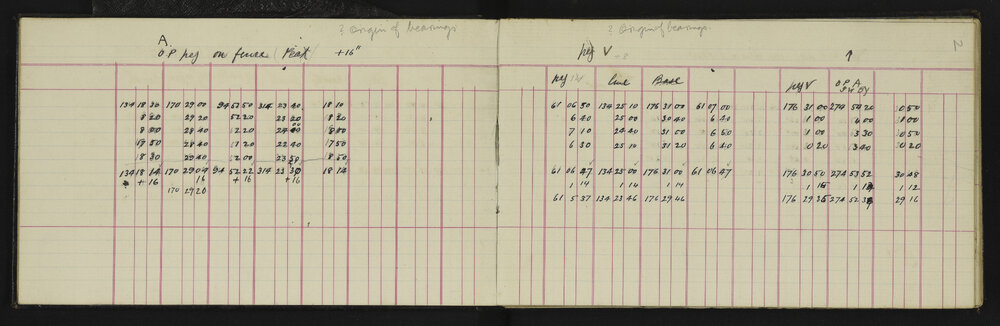 ? Origin of bearings
A.
O.P peg on fence (Peat) +16"
134 18 30 170 29 00 94 52 50 314 23 40 18 10
8 20 29 20 52 20 23 20 8 20
8 00 28 40 1 20 24 00 18 00
17 50 28 40 1 20 22 40 17 50
18 30 29 40 2 00 23 50 18 50
134 18 14 170 29 04 94 52 22 314 23 30 18 14
+ 16 16 + 16 +16
170 29 20
? Origin of bearings.
2
peg V
peg line Base peg V O.P. A.
61 06 50 134 25 10 176 31 00 61 07 00 176 31 00 274 54 20 0 50
6 40 25 00 30 40 6 40 1 00 1 00
7 10 24 40 31 00 6 50 1 00 3 30 0 50
6 30 25 10 31 20 6 40 0 20 3 40 0 20
61 06 47 134 25 00 176 31 00 61 06 47 176 30 50 274 53 52 30 48
1 14 1 14 1 14 1 15 1 12
61 5 37 134 23 46 176 29 46 176 29 35 274 52 29 16